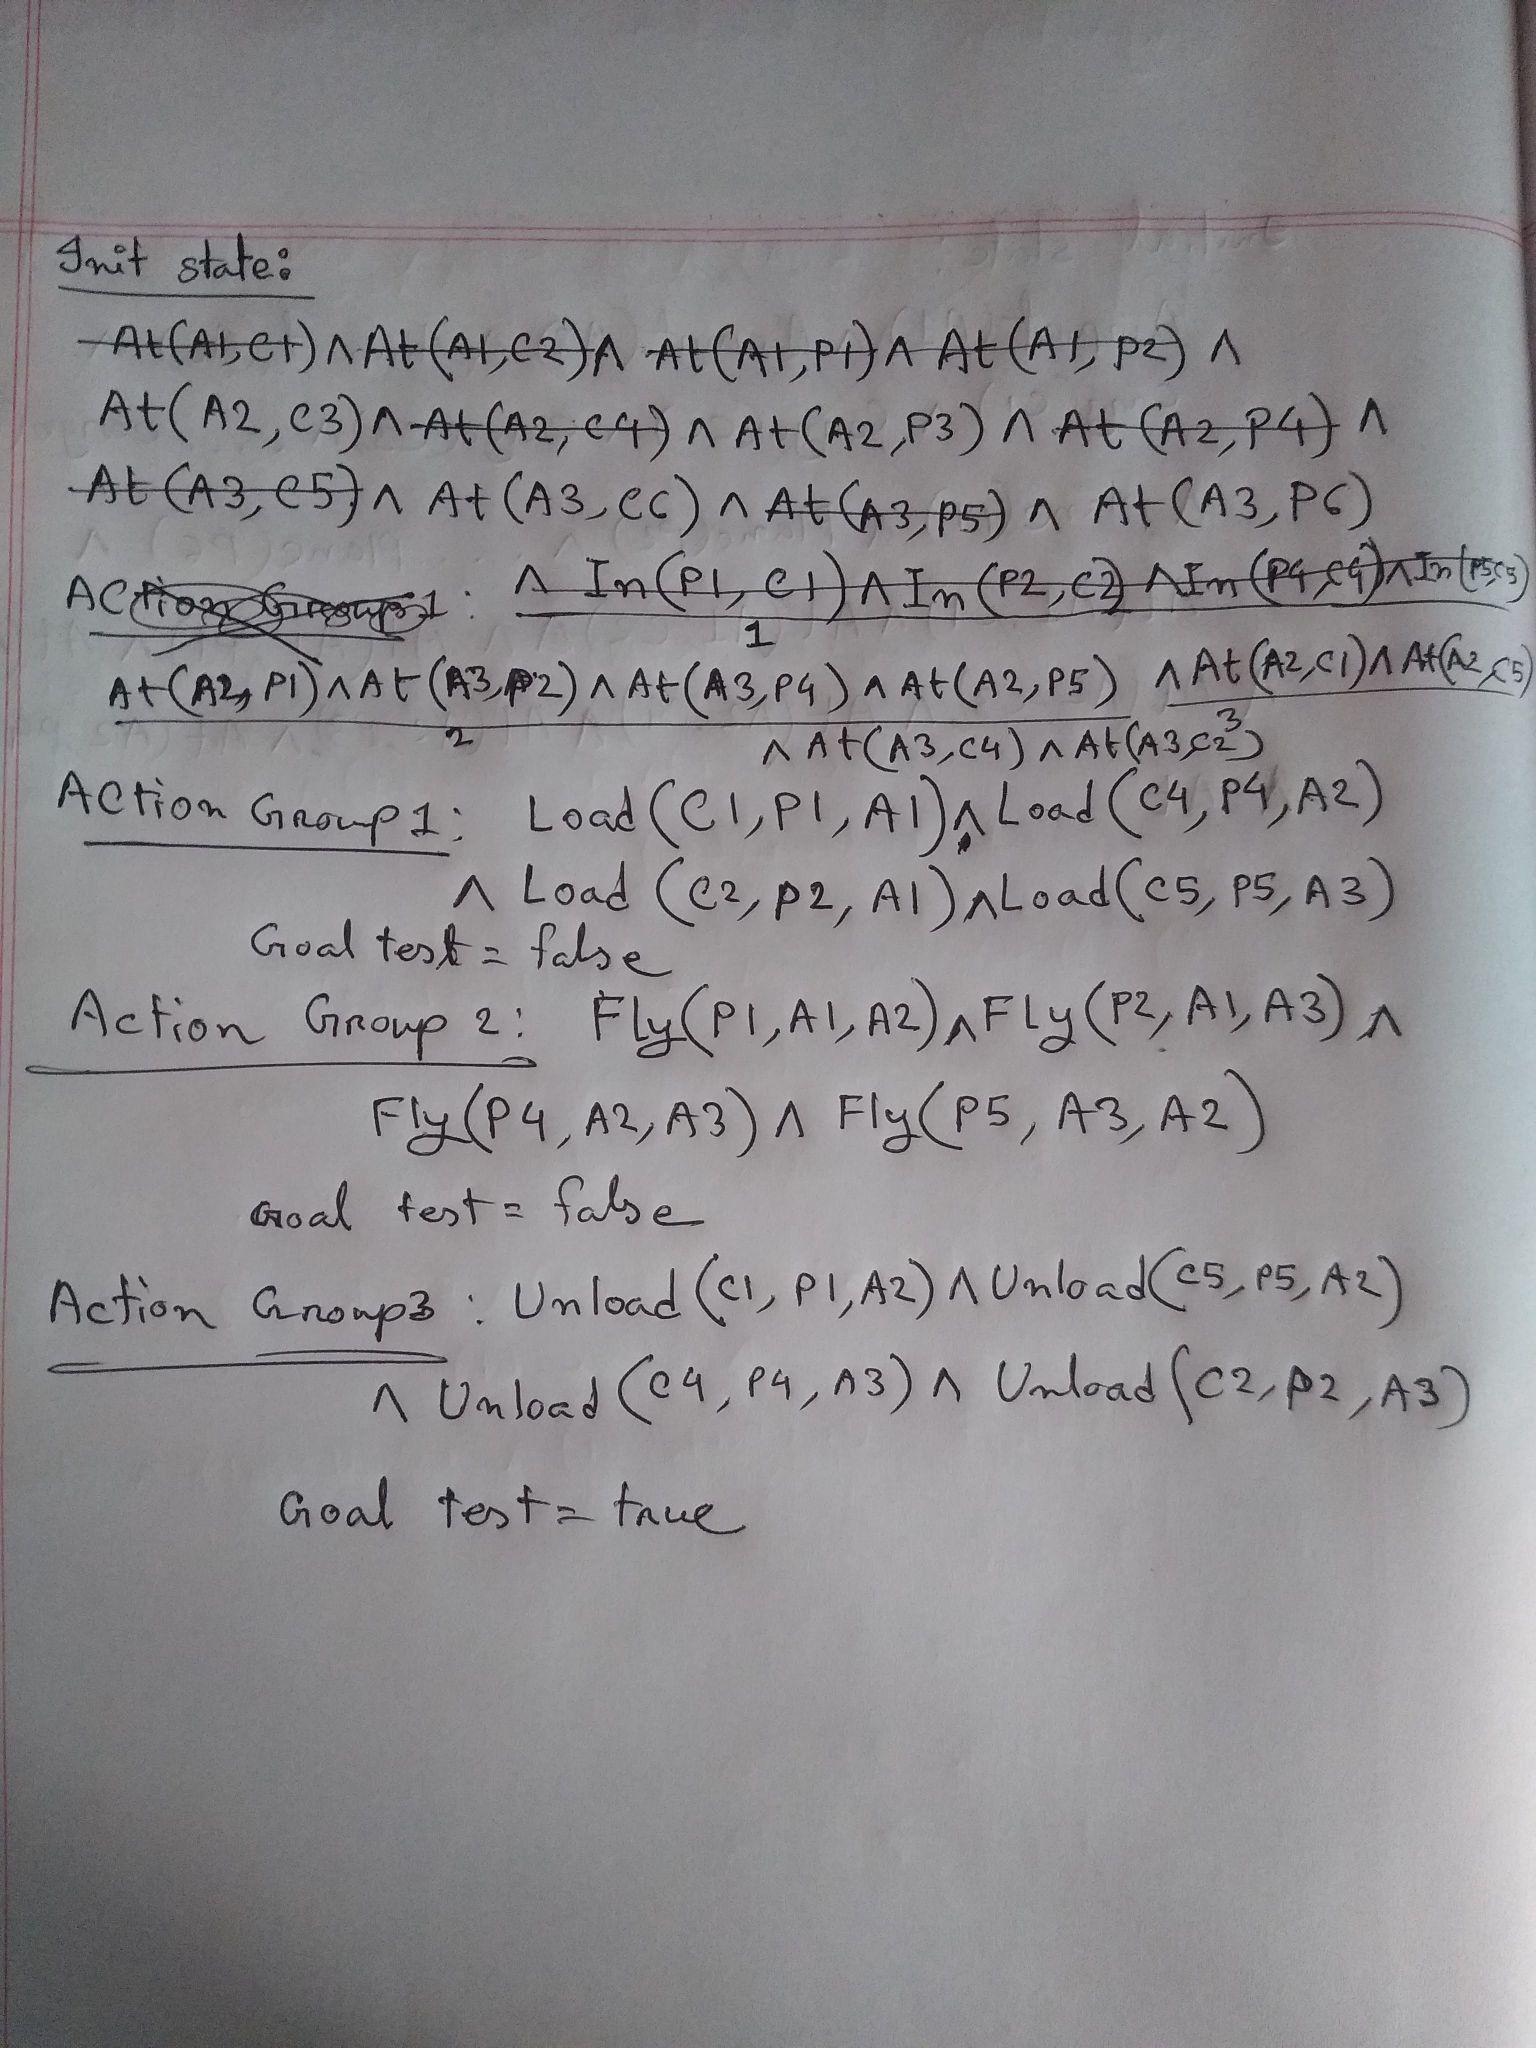 Init state:
At(A1,C1) ∧ At(A1,C2) ∧ At(A1,P1) ∧ At(A1,P2) ∧
At(A2,C3) ∧ At(A2,C4) ∧ At(A2,P3) ∧ At(A2,P4) ∧
At(A3,C5) ∧ At(A3,C6) ∧ At(A3,P5) ∧ At(A3,P6)
Action Group 1: ∧ In(P1,C1) ∧ In(P2,C2) ∧ In(P4,C4) ∧ In(P5,C5)
1
At(A2,P1) ∧ At(A3,P2) ∧ At(A3,P4) ∧ At(A2,P5) ∧ At(A2,C1) ∧ At(A2,C5)
2 3
∧ At(A3,C4) ∧ At(A3,C2)
Action Group 1: Load(C1,P1,A1) ∧ Load(C4,P4,A2)
∧ Load(C2,P2,A1) ∧ Load(C5,P5,A3)
Goal test = false
Action Group 2: Fly(P1,A1,A2) ∧ Fly(P2,A1,A3) ∧
Fly(P4,A2,A3) ∧ Fly(P5,A3,A2)
Goal test = false
Action Group3 : Unload(C1,P1,A2) ∧ Unload(C5,P5,A2)
∧ Unload(C4,P4,A3) ∧ Unload(C2,P2,A3)
Goal test = true